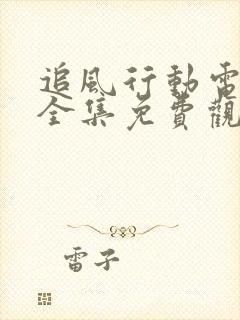 追風行動電
全集免費觀
雷子